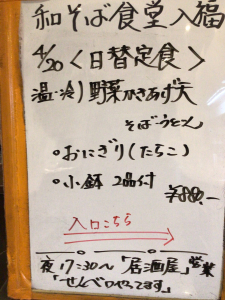 和そば食堂入福
4/20〈日替定食〉
温・冷)野菜かきあげ天
そば・うどん
・おにぎり(たらこ)
・小鉢 2品付
¥880.-
入口こちら
夜17:30〜「居酒屋」営業
「せんべろやってます」